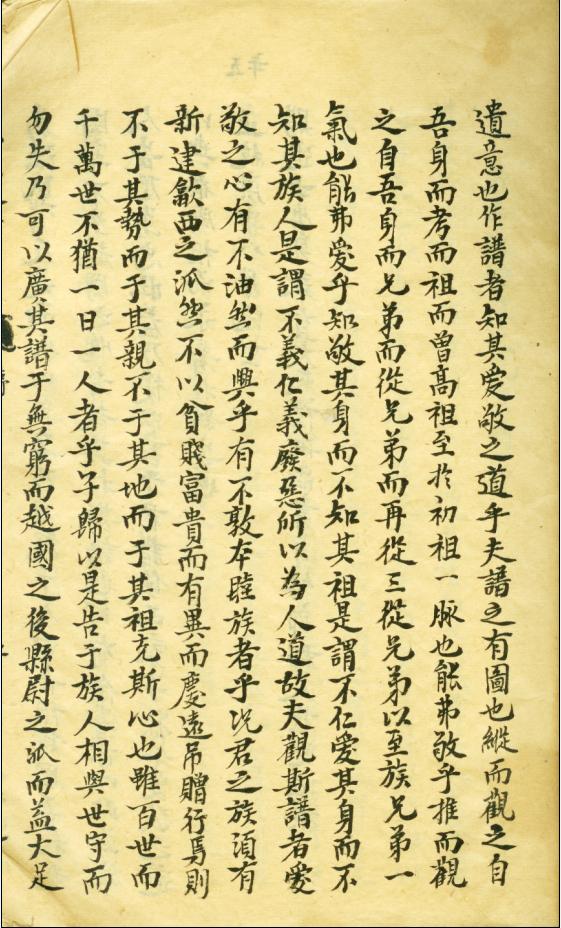 遺意也作譜者知其愛敬之道乎夫譜之有圖也縱而觀之自
吾身而考而祖而曽高祖至扵初祖一脉也能弗敬乎推而觀
之自吾身而兄弟而從兄弟而再從三從兄弟以至族兄弟一
氣也能弗愛乎知敬其身而不知其祖是謂不仁愛其身而不
知其族人是謂不義仁義廢惡所以為人道故夫觀斯譜者愛
敬之心有不油然而興乎有不敦本睦族者乎况君之族須有
新建歙西之派然不以貧賤富貴而有異而慶遠吊贈行焉則
不于其勢而于其親不于其地而于其祖克斯心也雖百世而
千萬世不猶一日一人者乎子歸以是告于族人相與世守而
勿失乃可以廣其譜于無窮而越國之後縣尉之派而益大足